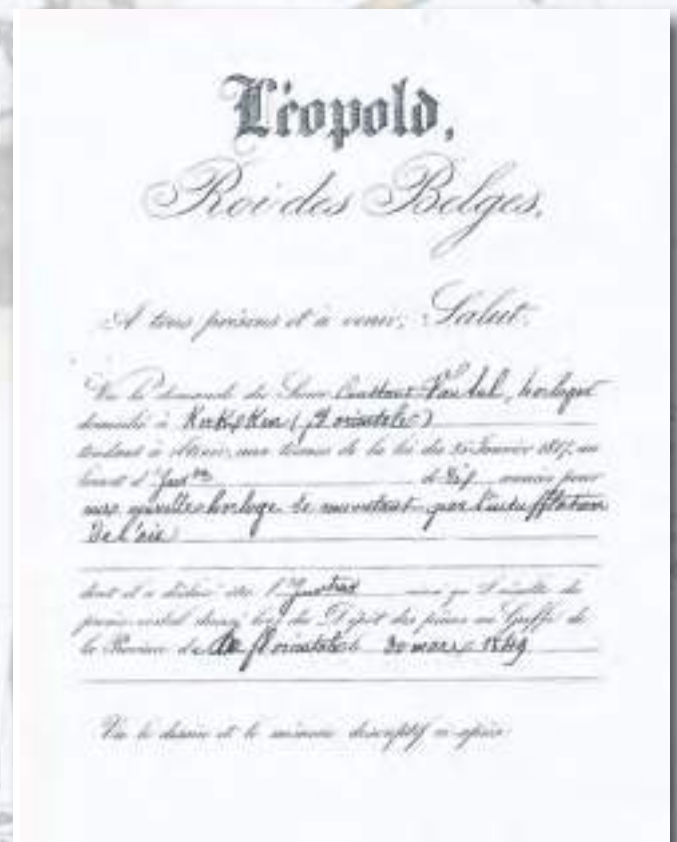 Léopold,
Roi des Belges.
A tous présens et à venir, Salut.
Vu la demande du Sieur Vantul, horloger
domicilié à
tendant à obtenir, aux termes de la loi du 25 Janvier 1817, un
brevet d' de dix années pour
une nouvelle horloge se montant par l'insufflation
De l'air
dont il a déclaré être l' ainsi qu'il résulte du
procès-verbal dressé lors du Dépôt des pièces au Greffe de
la Province de 30 mars 1849
Vu le dessin et le mémoire descriptif ci-après